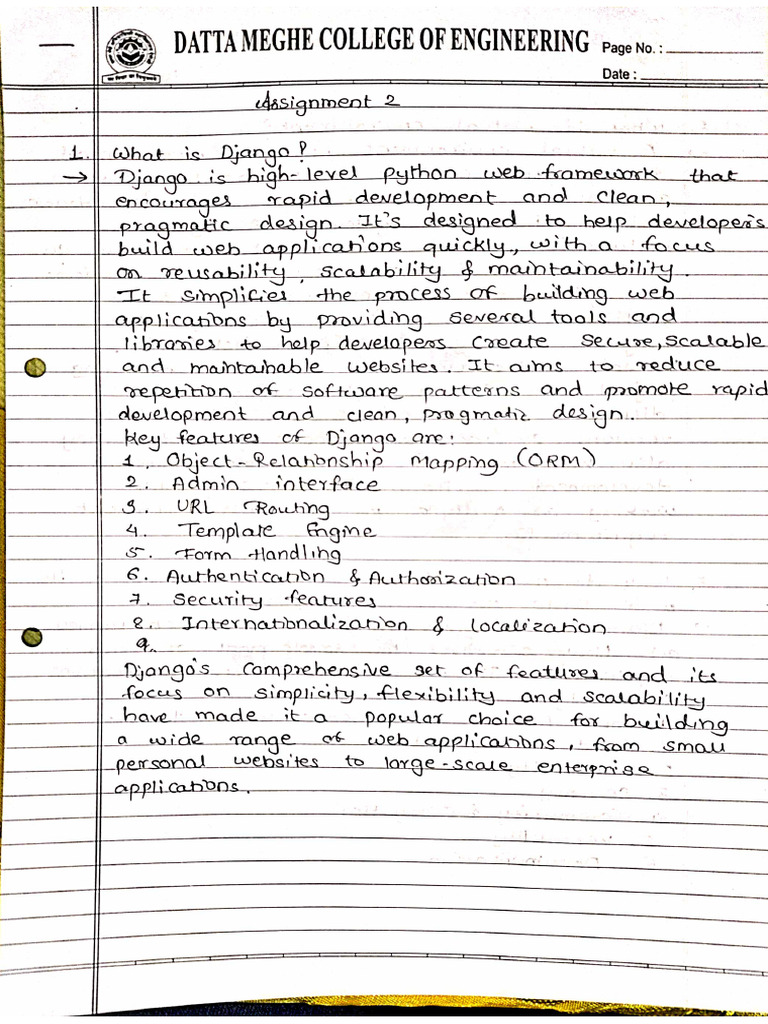 DATTA MEGHE COLLEGE OF ENGINEERING
Page No. :
Date :
Assignment 2
1. What is Django?
→ Django is high-level python web framework that
encourages rapid development and clean,
pragmatic design. It's designed to help developers
build web applications quickly, with a focus
on reusability, scalability & maintainability.
It simplifies the process of building web
applications by providing several tools and
libraries to help developers create secure, scalable
and maintainable websites. It aims to reduce
repetition of software patterns and promote rapid
development and clean, pragmatic design.
Key features of Django are:
1. Object-Relationship Mapping (ORM)
2. Admin interface
3. URL Routing
4. Template Engine
5. Form Handling
6. Authentication & Authorization
7. Security features
8. Internationalization & localization
9.
Django's comprehensive set of features and its
focus on simplicity, flexibility and scalability
have made it a popular choice for building
a wide range of web applications, from small
personal websites to large-scale enterprise
applications.